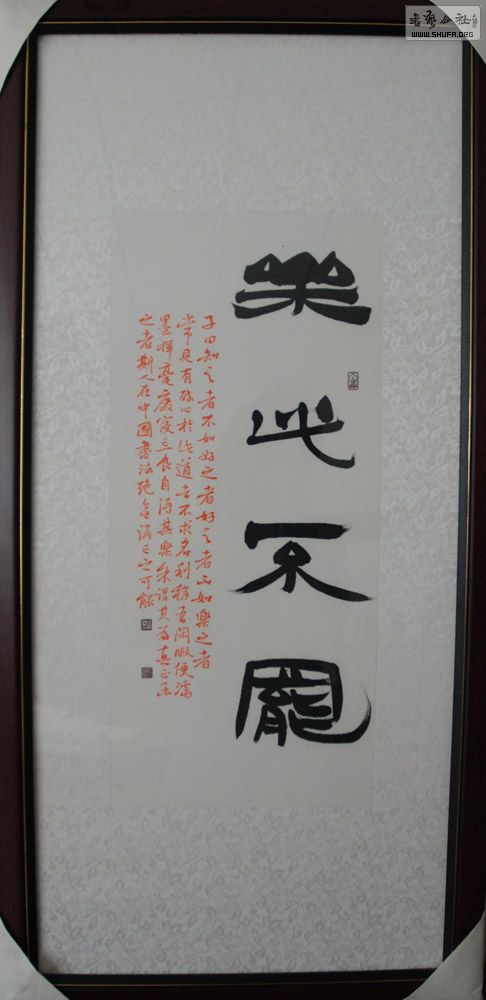 書艺公社
WWW.SHUFA.ORG
樂此不罷
子曰知之者不如好之者好之者不如樂之者
常見有酷心於此道者不求名利稍有閑暇便濡
墨揮毫廢寢忘食自得其樂
之者斯人在中國書法絕無消亡之可能